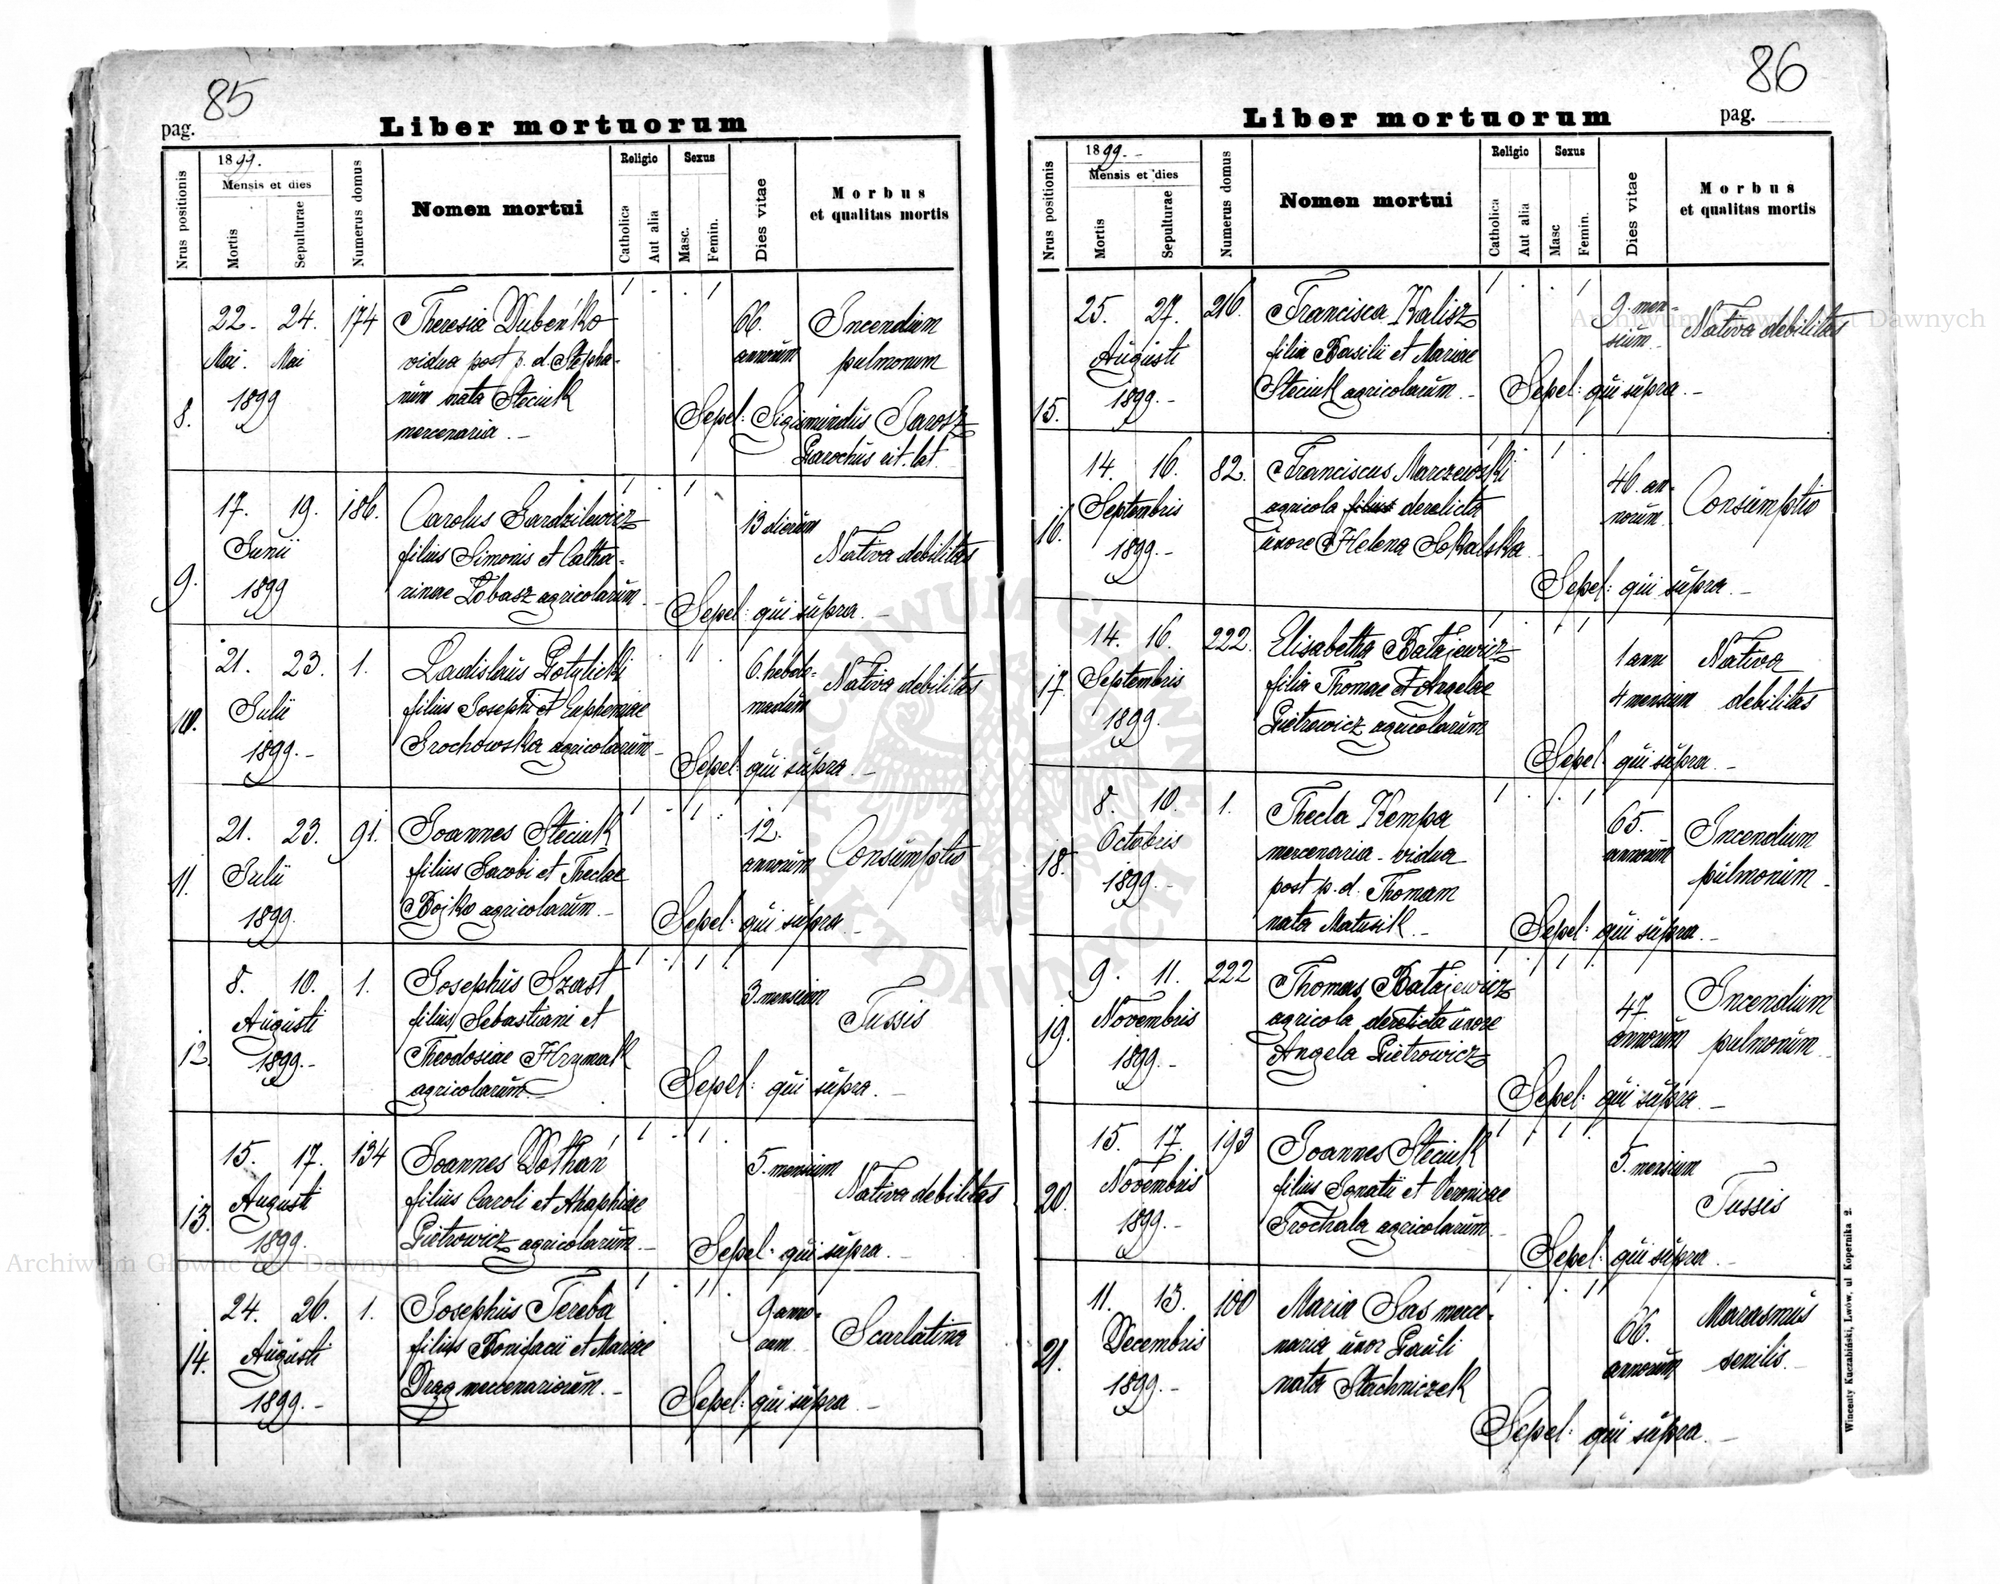 85
pag.
Liber mortuorum
Nrus positionis
1899.
Mensis et dies
Mortis
Sepulturae
Numerus domus
Nomen mortui
Religio
Catholica
Aut alia
Sexus
Masc.
Femin.
Dies vitae
Morbus
et qualitas mortis
8.
22. 24. 174 Theresia Dubeńko 66. Incendium
Mai. Mai vidua post p. d. Stepha- annorum pulmonum
1899 num nata Steciuk
mercenaria. Sepel: Sigismundus Jarosz
Parochus rit. lat.
9.
17. 19. 186. Carolus Gardzilewicz 13 dierum
Junii filius Simonis et Catha- Nativa debilitas
1899 rinae Lobasz agricolarum
Sepel: qui supra.
10.
21. 23. 1. Ladislaus Potylicki 6. hebdo- Nativa debilitas
Julii filius Josephi et Eupheniae madum
1899. Grochowska agricolarum
Sepel: qui supra.
11.
21. 23. 91. Joannes Steciuk 12. Consumptio
Julii filius Jacobi et Theclae annorum
1899. Bojko agricolarum.
Sepel: qui supra.
12.
8. 10. 1. Josephus Szast 3 mensium Tussis
Augusti filius Sebastiani et
1899. Theodosiae Hrymak
agricolarum
Sepel: qui supra.
13.
15. 17. 134 Joannes Dothań 5. mensium
Augusti filius Caroli et Ahaphiae Nativa debilitas
1899. Pietrowicz agricolarum.
Sepel: qui supra.
14.
24. 26. 1. Josephus Tereba 9 anno- Scarlatina
Augusti filius Bonifacii et Mariae rum
1899. Drag mercenariorum.
Sepel: qui supra
86
pag.
Liber mortuorum
Nrus positionis
1899.
Mensis et dies
Mortis
Sepulturae
Numerus domus
Nomen mortui
Religio
Catholica
Aut alia
Sexus
Masc
Femin.
Dies vitae
Morbus
et qualitas mortis
15.
25. 27. 216. Francisca Kalisz 9. men- Nativa debilitas
Augusti filia Basilii et Mariae sium
1899. Steciuk agricolarum.
Sepel: qui supra.
16.
14. 16. 82. Franciscus Marczewski 46. an- Consumptio
Septembris agricola filius derelicta norum
1899. uxore Helena Sokalska
Sepel: qui supra.
17.
14. 16. 222. Elisabetha Batajewicz 1 anni Nativa
Septembris filia Thomae et Angelae 4 mensium debilitas
1899. Pietrowicz agricolarum
Sepel: qui supra.
18.
8. 10. 1. Thecla Kempa 65. Incendium
Octobris mercenaria vidua annorum pulmonum
1899. post p. d. Thomam
nata Matusik.
Sepel: qui supra.
19.
9. 11. 222 Thomas Batajewicz 47. Incendium
Novembris agricola derelicta uxore annorum pulmonum
1899. Angela Pietrowicz
Sepel: qui supra.
20.
15. 17. 193 Joannes Steciuk 5. mensium
Novembris filius Ignatii et Veronicae Tussis
1899. Grochala agricolarum.
Sepel: qui supra.
21.
11. 13. 100 Maria Sas merce- 66. Marasmus
Decembris naria uxor Pauli annorum senilis.
1899. nata Stachniczek
Sepel: qui supra.
Wincenty Kuczabiński, Lwów, ul Kopernika 2.
Archiwum Główne Akt Dawnych
Archiwum Główne Akt Dawnych
ARCHIWUM GŁÓWNE AKT DAWNYCH